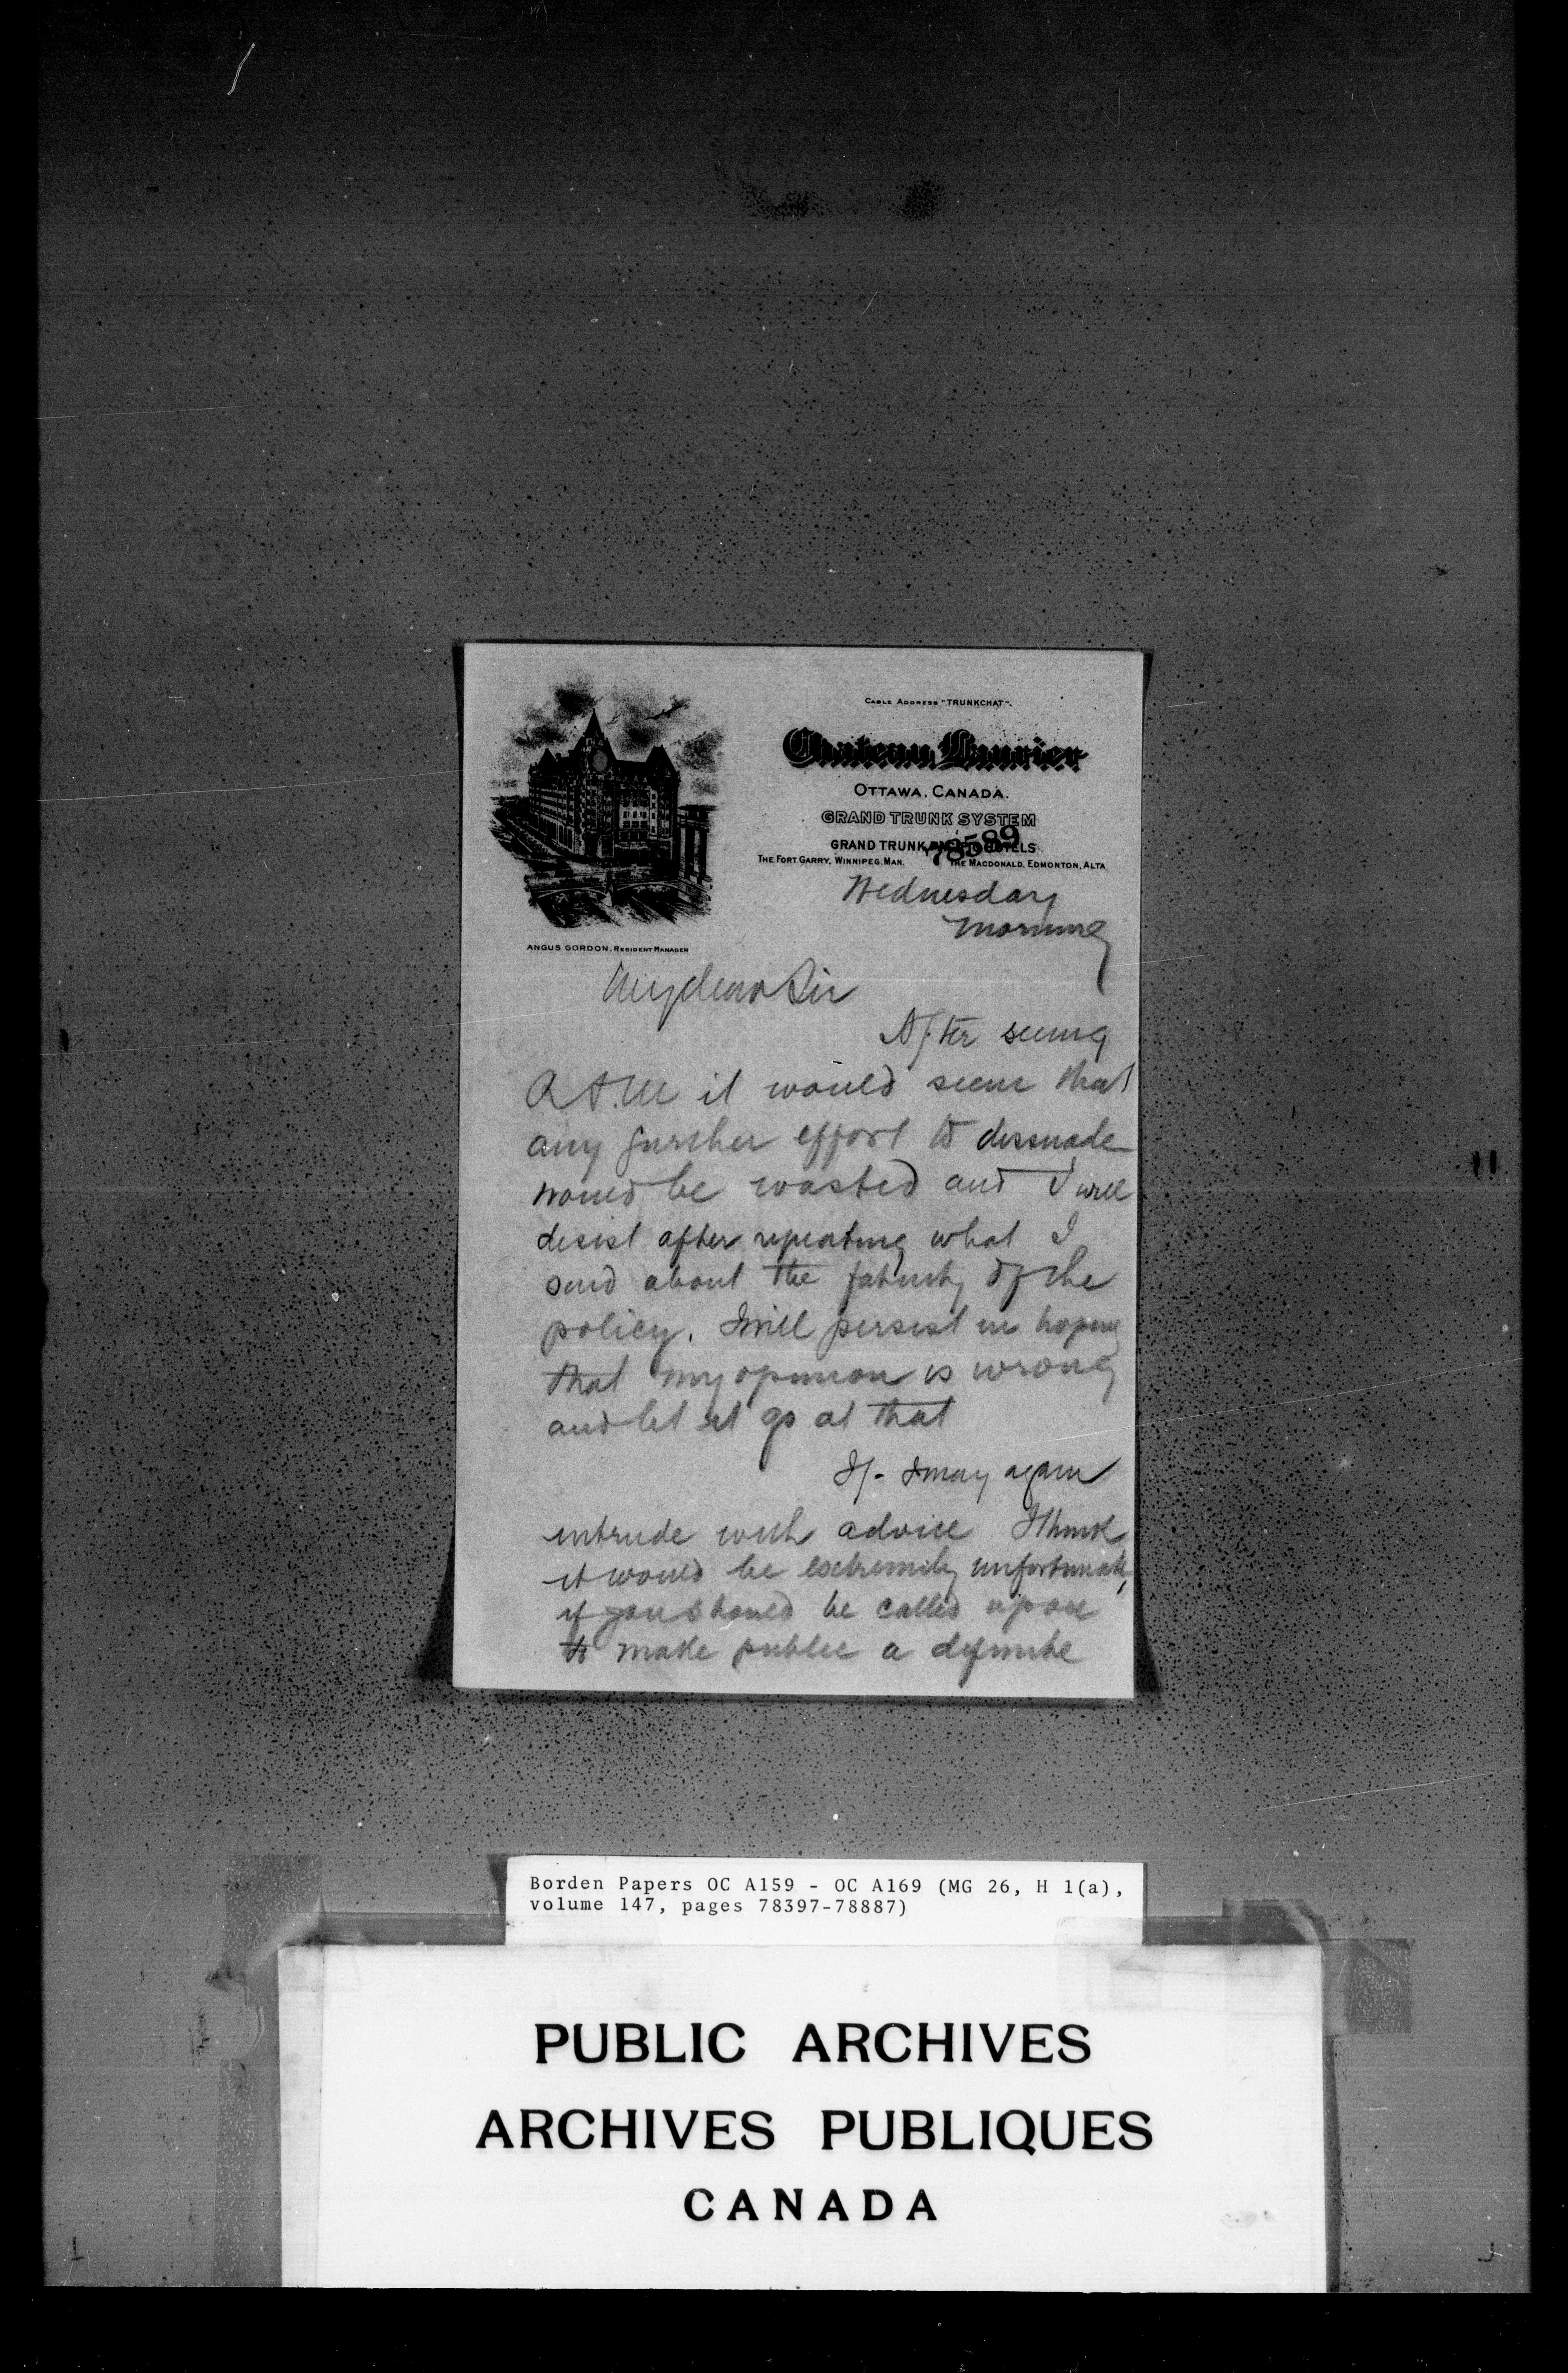 CABLE ADDRESS "TRUNKCHAT".
Chateau Laurier
OTTAWA, CANADA.
GRAND TRUNK SYSTEM
78589
GRAND TRUNK HOTELS
THE FORT GARRY, WINNIPEG, MAN. THE MACDONALD, EDMONTON, ALTA
ANGUS GORDON, RESIDENT MANAGER
Wednesday
morning
My dear Sir
After seeing
it would seem that
any further effort to dissuade
would be wasted and I will
desist after repeating what I
said about the fatuity of the
policy. I will persist in hoping
that my opinion is wrong
and let it go at that
If I may again
intrude with advice I think
it would be extremely unfortunate,
if you should be called upon
to make public a definite
Borden Papers OC A159 - OC A169 (MG 26, H 1(a),
volume 147, pages 78397-78887)
PUBLIC ARCHIVES
ARCHIVES PUBLIQUES
CANADA